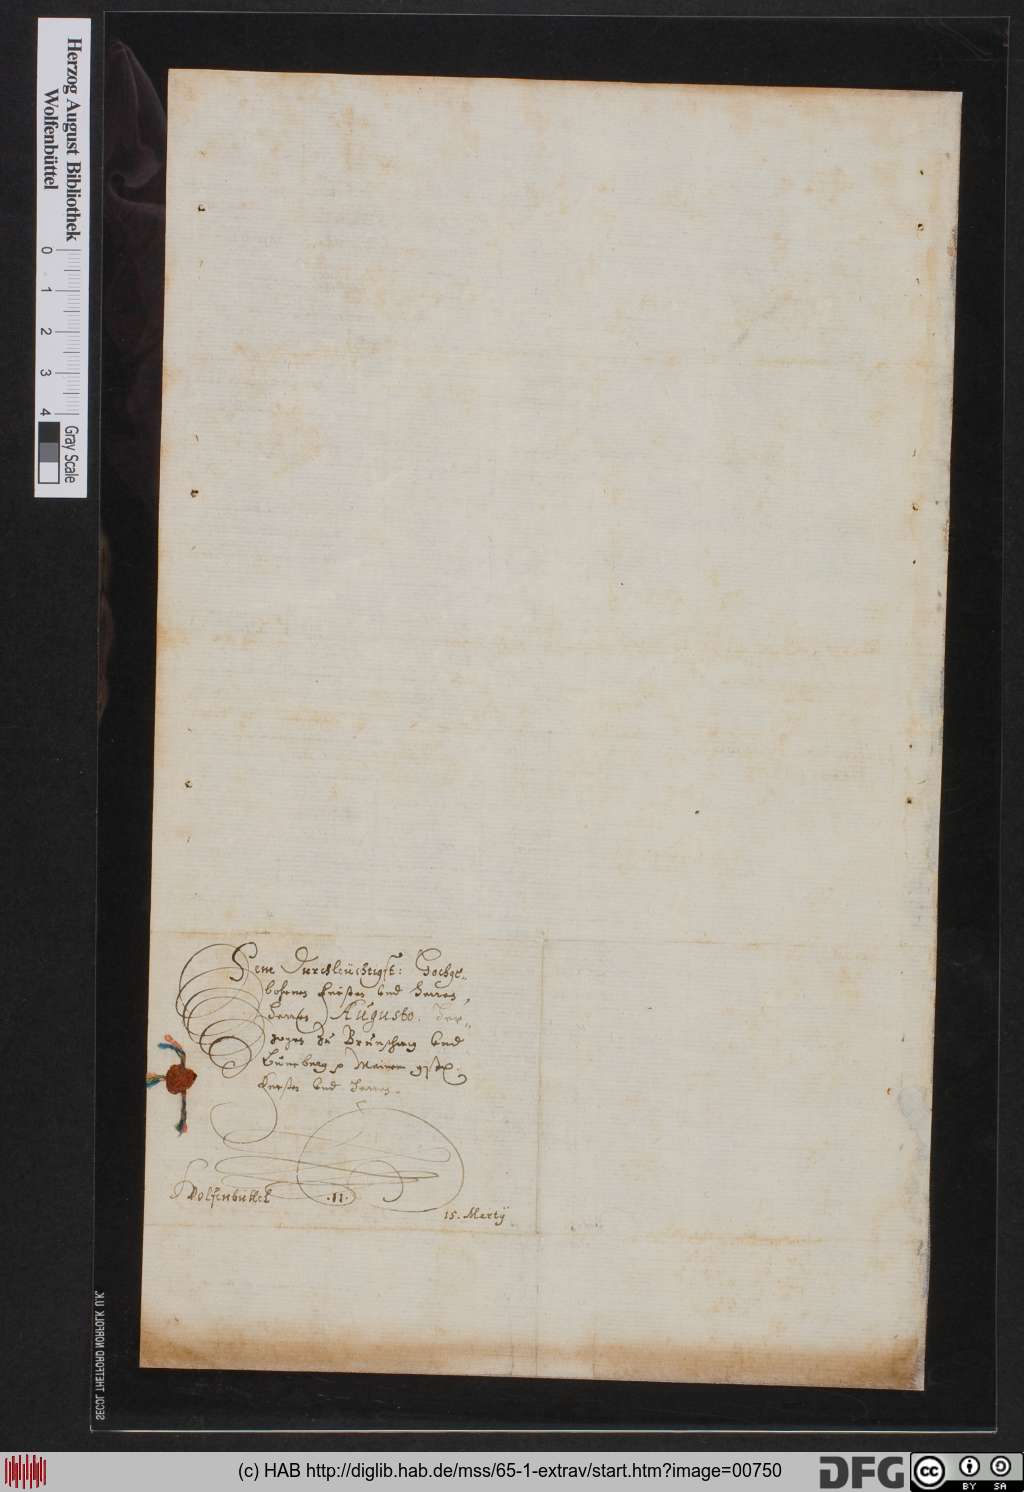 Herzog August Bibliothek
Wolfenbüttel
0 1 2 3 4
Gray Scale
Dem Durchleüchtigst: Hochge„
bohrnen Fürsten und Herren,
Herren Augusto. Her„
zogen zu Brunschwig und
Lüneberg Meinem
Fürsten und Herren.
Wolfenbüttel
.11.
15. Martij
SECOL THETFORD NORFOLK U.K.
(c) HAB http://diglib.hab.de/mss/65-1-extrav/start.htm?image=00750
DFG
cc
BY SA